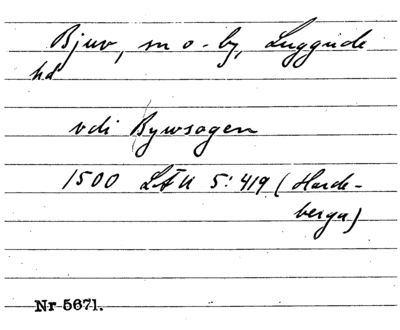 Bjuv, sn o. by, Luggude
hd
vdi Bywsogen
1500 LÄU 5:419 (Harde-
berga)
Nr 5671.